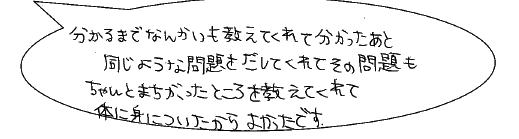 分かるまでなんかいも教えてくれて分かったあと
同じような問題をだしてくれてその問題も
ちゃんとまちがったところを教えてくれて
体に身についたからよかったです。